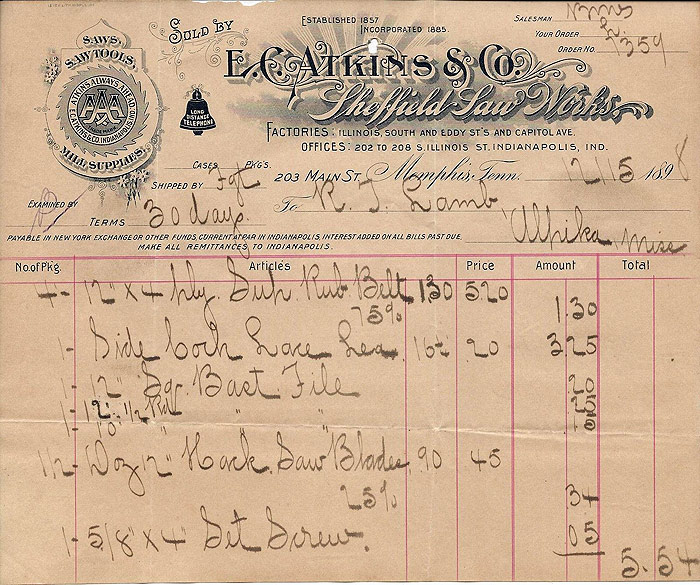 SOLD BY
ESTABLISHED 1857
INCORPORATED 1885.
SALESMAN
YOUR ORDER
ORDER NO. 7359
SAWS,
SAW TOOLS,
ATKINS ALWAYS AHEAD
E.C. ATKINS & CO. INDIANAPOLIS, IND.
AAA
MILL SUPPLIES.
LONG
DISTANCE
TELEPHONE
E. C. ATKINS & CO.
Sheffield Saw Works.
FACTORIES: ILLINOIS, SOUTH AND EDDY ST'S AND CAPITOL AVE.
OFFICES: 202 TO 208 S. ILLINOIS ST. INDIANAPOLIS, IND.
CASES PK'G'S.
203 MAIN ST. Memphis, Tenn. 12/15 1898
SHIPPED BY Fgt
EXAMINED BY
To R. T. Lamb
TERMS 30 days.
Miss
PAYABLE IN NEW YORK EXCHANGE OR OTHER FUNDS, CURRENT AT PAR IN INDIANAPOLIS. INTEREST ADDED ON ALL BILLS PAST DUE.
MAKE ALL REMITTANCES TO INDIANAPOLIS.
No. of Pkg. Articles Price Amount Total
4- 12" x 4 ply. Rub. Belt 130 5.20
75% 1.30
1- Side Lace Lea. 16- 20 3.25
1- 12" Sq. Bast. File 20
1- " "
1/2- Doz 12" Hack Saw Blades 90 45
25% 34
1- 5/8" x 4" Set Screw. 05
5.54